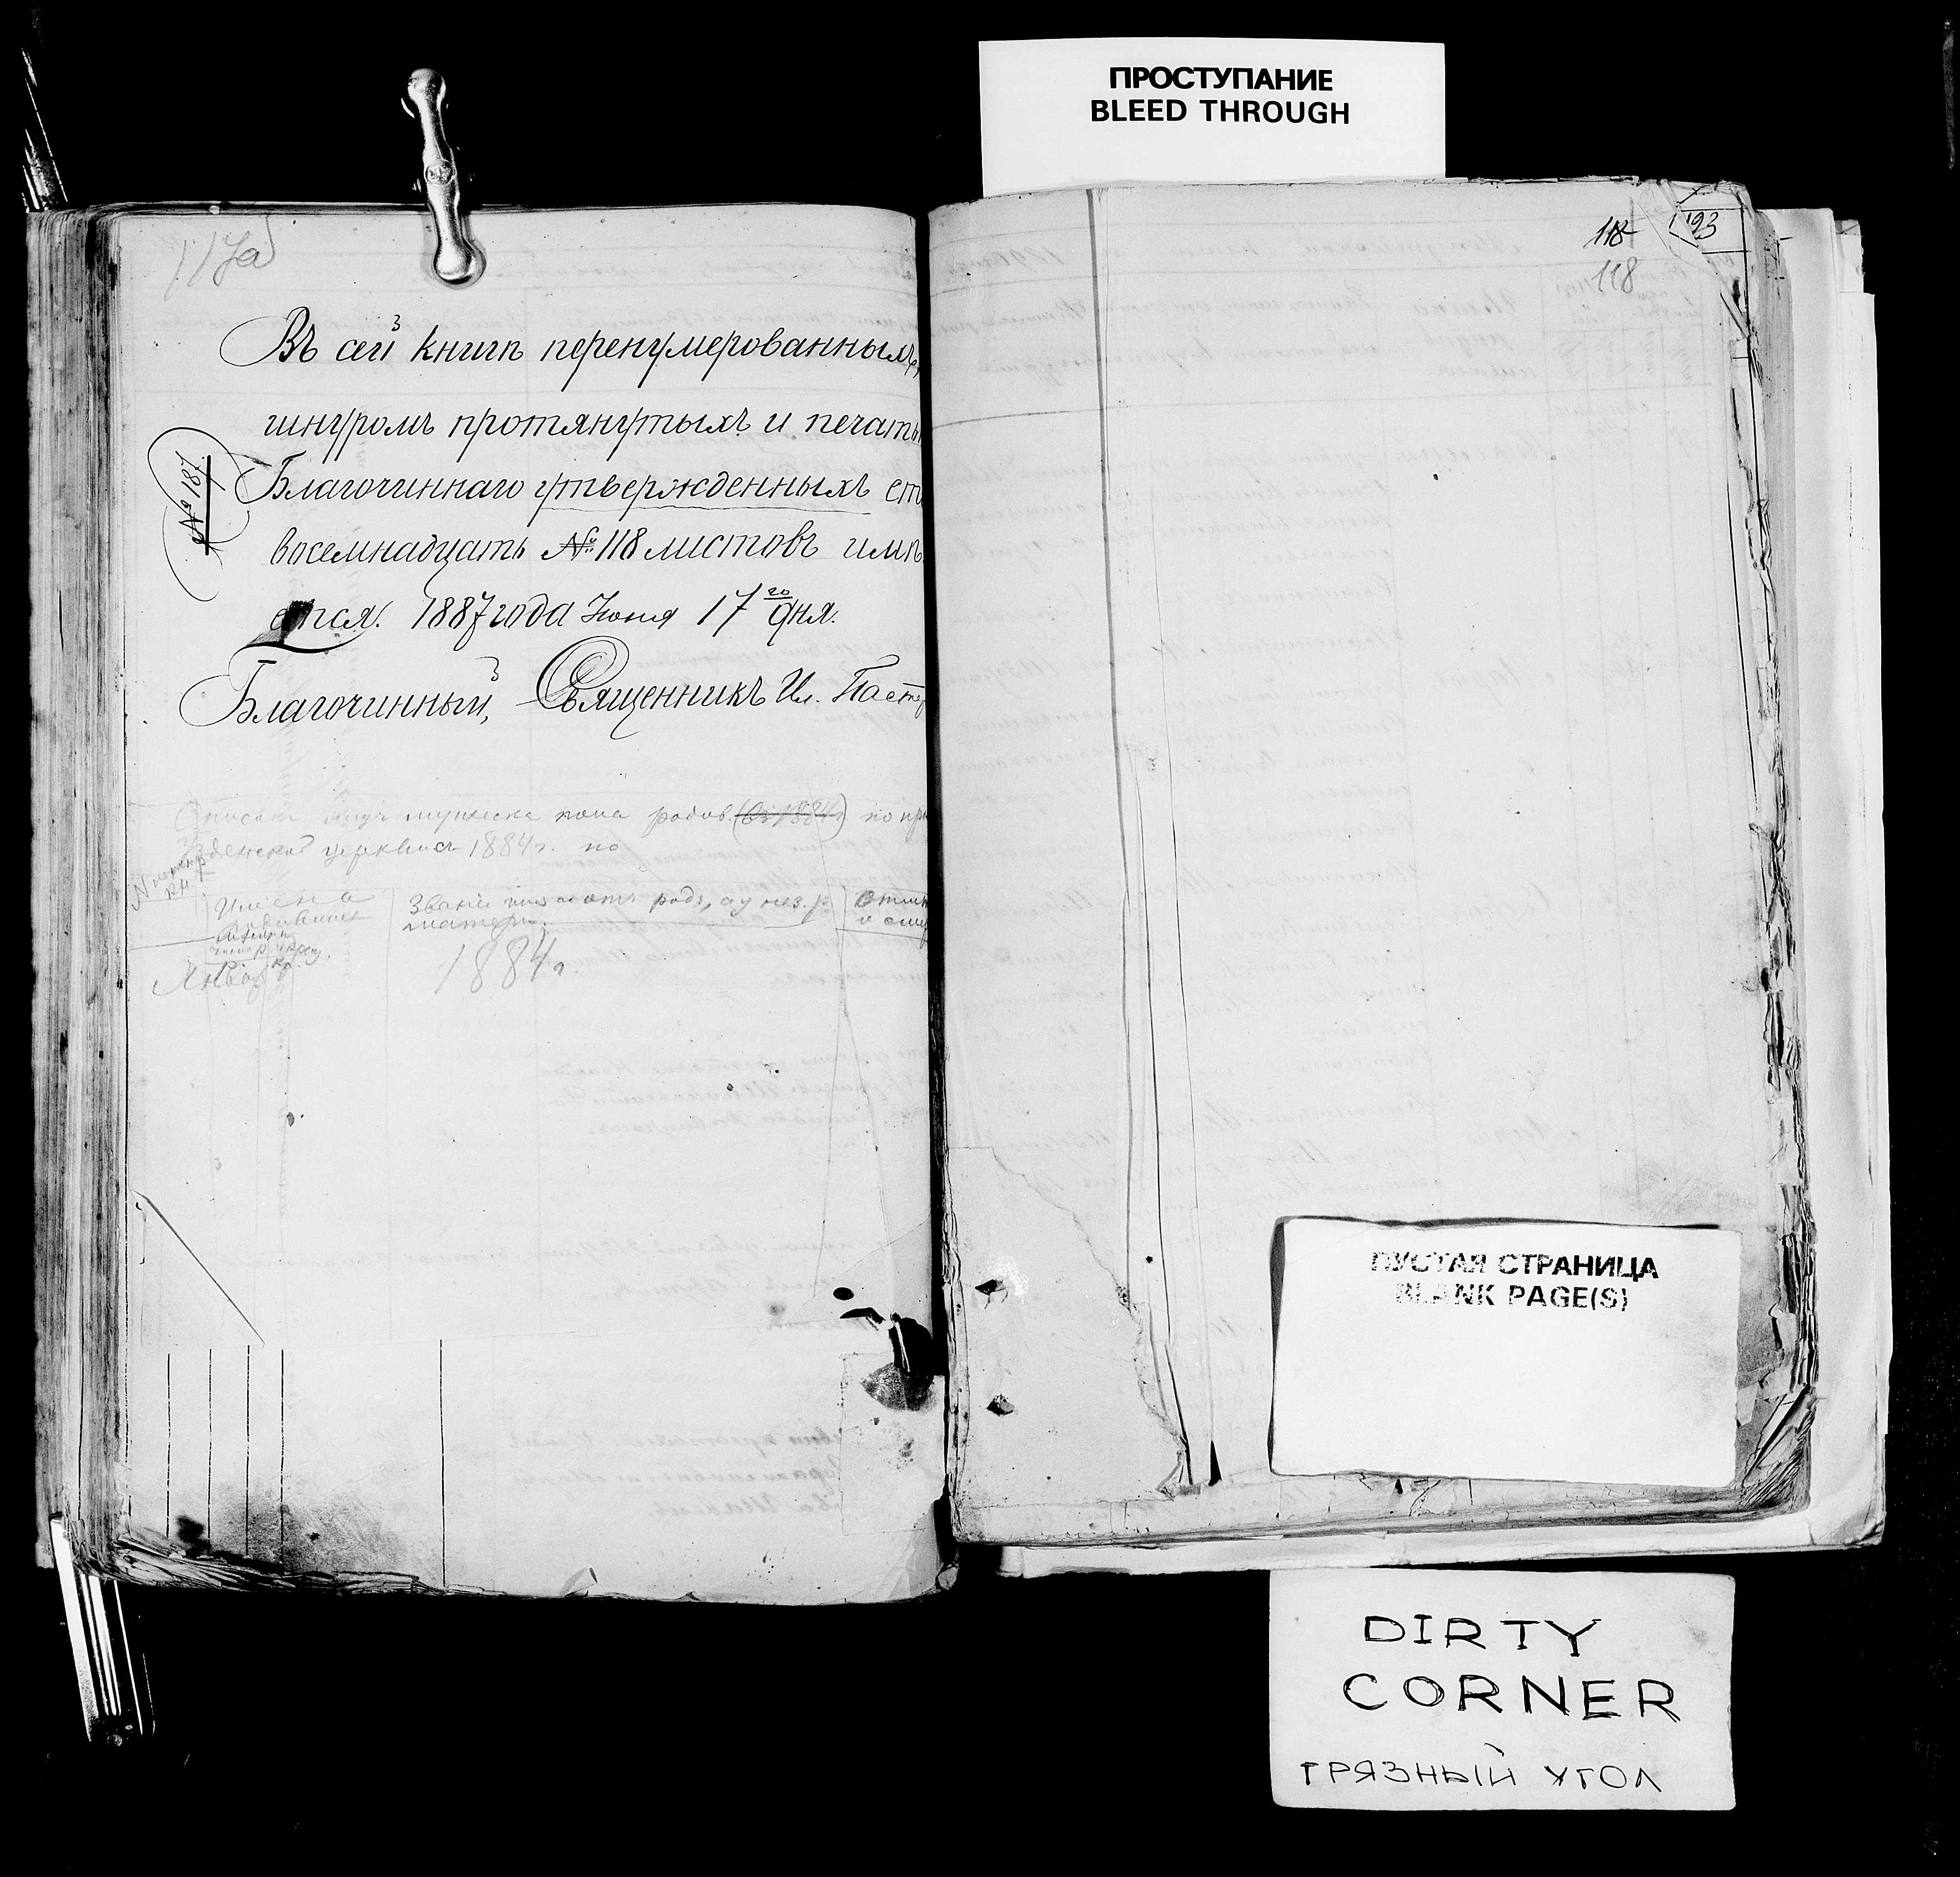 ПРОСТУПАНИЕ
BLEED THROUGH
117а
Въ сей книгѣ перенумерованныхъ,
шнуромъ протянутыхъ и печатью
Благочиннаго утвержденныхъ сто
восемнадцать № 118 листовъ имѣ
ется. 1887 года Іюня 17го дня.
Благочинный, Священникъ Ил. Паст
№ 187.
мужеска пола родов. (въ 1884) по
церкви съ 1884 г. по
Имена
Званіе родъ, а у нез. р.
матери.
Январь
1884 г.
118
93
118
ПУСТАЯ СТРАНИЦА
BLANK PAGE(S)
DIRTY
CORNER
ГРЯЗНЫЙ УГОЛ